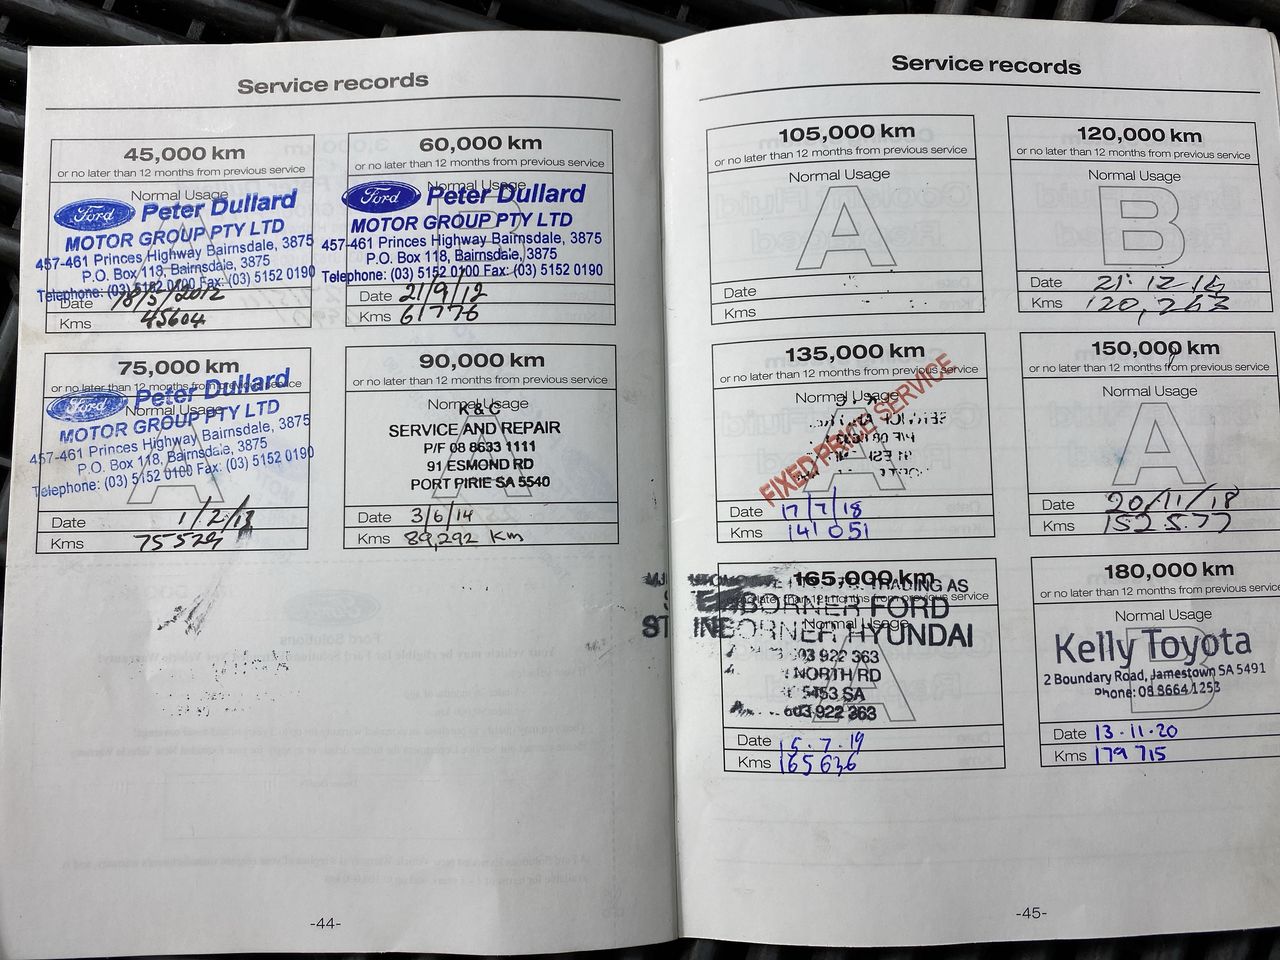 Service records
45,000 km
or no later than 12 months from previous service
Normal Usage
Ford Peter Dullard
MOTOR GROUP PTY LTD
457-461 Princes Highway Bairnsdale, 3875
P.O. Box 118, Bairnsdale, 3875
Telephone: (03) 5152 0100 Fax: (03) 5152 0190
Date 18/5/2012
Kms 45604
60,000 km
or no later than 12 months from previous service
Normal Usage
B
Ford Peter Dullard
MOTOR GROUP PTY LTD
457-461 Princes Highway Bairnsdale, 3875
P.O. Box 118, Bairnsdale, 3875
Telephone: (03) 5152 0100 Fax: (03) 5152 0190
Date 21/9/12
Kms 61776
75,000 km
or no later than 12 months from previous service
Normal Usage
A
Ford Peter Dullard
MOTOR GROUP PTY LTD
457-461 Princes Highway Bairnsdale, 3875
P.O. Box 118, Bairnsdale, 3875
Telephone: (03) 5152 0100 Fax: (03) 5152 0190
Date 1/2/13
Kms 75529
90,000 km
or no later than 12 months from previous service
Normal Usage
A
K & C
SERVICE AND REPAIR
P/F 08 8633 1111
91 ESMOND RD
PORT PIRIE SA 5540
Date 3/6/14
Kms 89,292 km
-44-
Service records
105,000 km
or no later than 12 months from previous service
Normal Usage
A
Date
Kms
120,000 km
or no later than 12 months from previous service
Normal Usage
B
Date 21.12.16
Kms 120,263
135,000 km
or no later than 12 months from previous service
Normal Usage
A
FIXED PRICE SERVICE
Date 17/7/18
Kms 141 051
150,000 km
or no later than 12 months from previous service
Normal Usage
A
Date 20/11/18
Kms 152577
165,000 km
or no later than 12 months from previous service
Normal Usage
A
TRADING AS
BORNER FORD
BORNER HYUNDAI
922 363
NORTH RD
5453 SA
922 363
Date 15.7.19
Kms 165636
180,000 km
or no later than 12 months from previous service
Normal Usage
B
Kelly Toyota
2 Boundary Road, Jamestown SA 5491
Phone: 08 8664 1253
Date 13.11.20
Kms 179 715
-45-